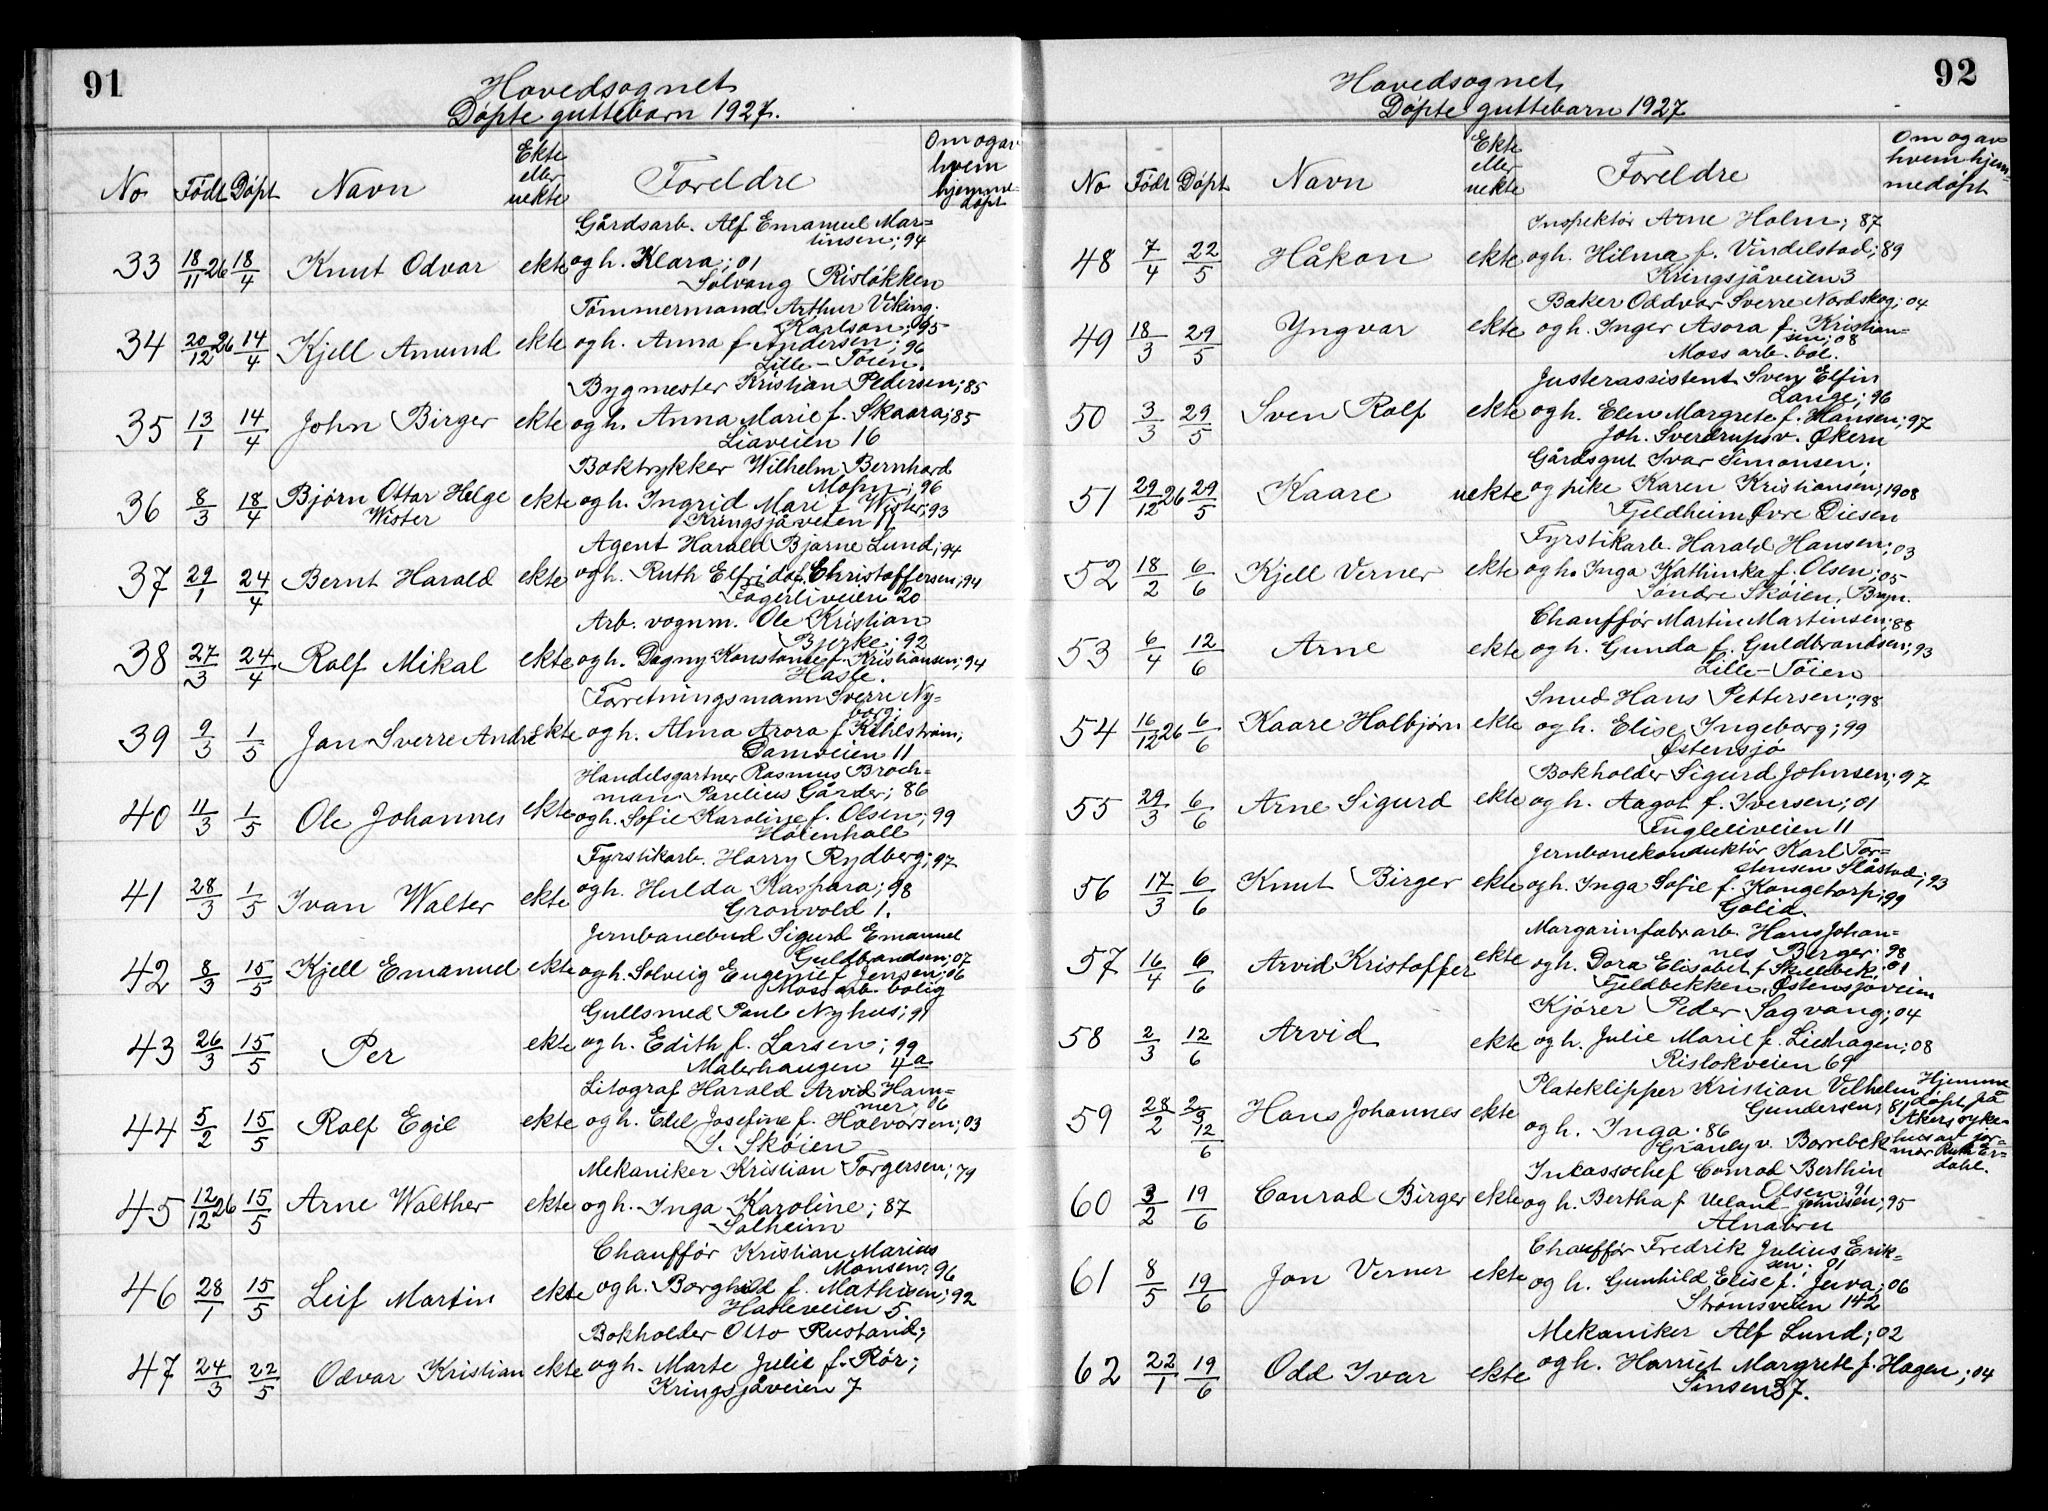 91
Hovedsognet
Døpte guttebarn 1927.
No Født Døpt Navn Ekte eller uekte Foreldre Om og av hvem hjemmedøpt
Gårdsarb. Alf Emanuel Mar=
tinsen; 94
33 18/11 26 18/4 Knut Odvar ekte og h. Klara; 01
Solvang Risløkken
Tømmermand. Arthur Viking
Karlson; 95
34 20/12 26 14/4 Kjell Amund ekte og h. Anna f Andersen; 96
Lille-Tøien.
Bygmester Kristian Pedersen; 85
35 13/1 14/4 John Birger ekte og h. Anna Marie f. Skaara; 85
Liaveien 16
Boktrykker Wilhelm Bernhard
36 8/3 18/4 Bjørn Ottar Helge Wister ekte og h. Ingrid Marie f Wister; 93
Kringsjåveien 11
Agent Harald Bjarne Lund; 94
37 29/1 24/4 Bernt Harald ekte og h. Ruth Elfrida f. Christoffersen; 94
Fagerliveien 20
Arb. vognm. Ole Kristian
Bjerke; 92
38 27/3 24/4 Rolf Mikal ekte og h. Dagny Konstanse f. Kristiansen; 94
Hasle.
Forretningsmann Sverre Ny-
borg;
39 9/3 1/5 Jan Sverre André ekte og h. Alma Arora f Kihlstrøm;
Damveien 11
Handelsgartner Rasmus Broch-
man Parelius Gårder; 86
40 11/3 1/5 Ole Johannes ekte og h. Sofie Karoline f. Olsen; 99
Høienhall
Fyrstikarb. Harry Rydberg; 97
41 28/3 1/5 Ivan Walter ekte og h. Hulda Kaspara; 98
Grønvold 1.
Jernbanebud Sigurd Emanuel
Guldbrandsen; 07
42 8/3 15/5 Kjell Emanuel ekte og h. Solveig Eugenie f Jensen; 06
Moss arb. bolig
Gullsmed Paul Nyhus; 91
43 26/3 15/5 Per ekte og h. Edith f. Larsen; 99
Malerhaugen 4a
Litograf Harald Arvid Ham=
mer; 06
44 5/2 15/5 Rolf Egil ekte og h. Edel Josefine f. Halvorsen; 03
S. Skøien
Mekaniker Kristian Torgersen; 79
45 12/12 26 15/5 Arne Walther ekte og h. Inga Karoline; 87
Solheim
Chauffør Kristian Marius
Monsen; 96
46 28/1 15/5 Leif Martin ekte og h. Borghild f. Mathisen; 92
Hasleveien 5.
Bokholder Otto Rustand;
47 24/3 22/5 Odvar Kristian ekte og h. Marte Julie f. Rør;
Kringsjåveien 7
92
Hovedsognet
Døpte guttebarn 1927
No Født Døpt Navn Ekte eller uekte Foreldre Om og av hvem hjemmedøpt
Inspektør Arne Holm; 87
48 7/4 22/5 Håkon ekte og h. Hilma f. Vindelstad; 89
Kringsjåveien 3
Baker Oddvar Sverre Nordskog; 04
49 18/3 29/5 Yngvar ekte og h. Inger Asora f. Kristian=
sen; 08
Moss arb. bol.
Justerassistent Sven Elfin
Lange; 96
50 3/3 29/5 Sven Rolf ekte og h. Elen Margrete f. Hansen; 97
Joh. Sverdrups v. Økern
Gårdsgut Ivar Simonsen;
51 29/12 26 29/5 Kaare uekte og pike Karen Kristiansen; 1908
Fjeldheim Øvre Diesen
Fyrstikarb. Harald Hansen; 03
52 18/2 6/6 Kjell Verner ekte og h. Inga Kathinka f. Olsen; 05
Søndre Skøien, Bryn.
Chauffør Martin Martinsen; 88
53 6/4 12/6 Arne ekte og h. Gunda f. Guldbrandsen; 93
Lille-Tøien
Smed Hans Pettersen; 98
54 16/12 26 6/6 Kaare Halbjørn ekte og h. Elise Ingeborg; 99
Østensjø
Bokholder Sigurd Johnsen; 97
55 29/3 6/6 Arne Sigurd ekte og h. Aagot f. Iversen; 01
Fugleliveien 11
Jernbanekonduktør Karl Tor=
stensen Slåstad; 93
56 17/3 6/6 Knut Birger ekte og h. Inga Sofie f. Kongetorp; 99
Golia.
Margarinfabr arb. Hans Johan=
nes Berger; 98
57 16/4 6/6 Arvid Kristoffer ekte og h. Dora Elisabet f Skillebek; 01
Fjeldbekken, Østensjøveien
Kjører Peder Sagvang; 04
58 2/3 12/6 Arvid ekte og h. Julie Marie f. Liethagen; 08
Risløkveien 69
Plateklipper Kristian Vilhelm
Gundersen; 81
59 28/2 2/3 12/6 Hans Johannes ekte og h. Inga; 86
Granly v. Borrebek
Hjemmedøpt på Akers sykehus av jormor Ruth Erdahl.
Inkassochef Conrad Berthin
Olsen; 91
60 3/2 19/6 Conrad Birger ekte og h. Bertha f Ueland-Johnsen; 95
Alnabru
Chauffør Fredrik Julius Erik-
sen; 01
61 8/5 19/6 Jon Verner ekte og h. Gunhild Elise f. Juva; 06
Strømsveien 142
Mekaniker Alf Lund; 02
62 22/1 19/6 Odd Ivar ekte og h. Harriet Margrete f. Hagen; 04
Sinsen 37.